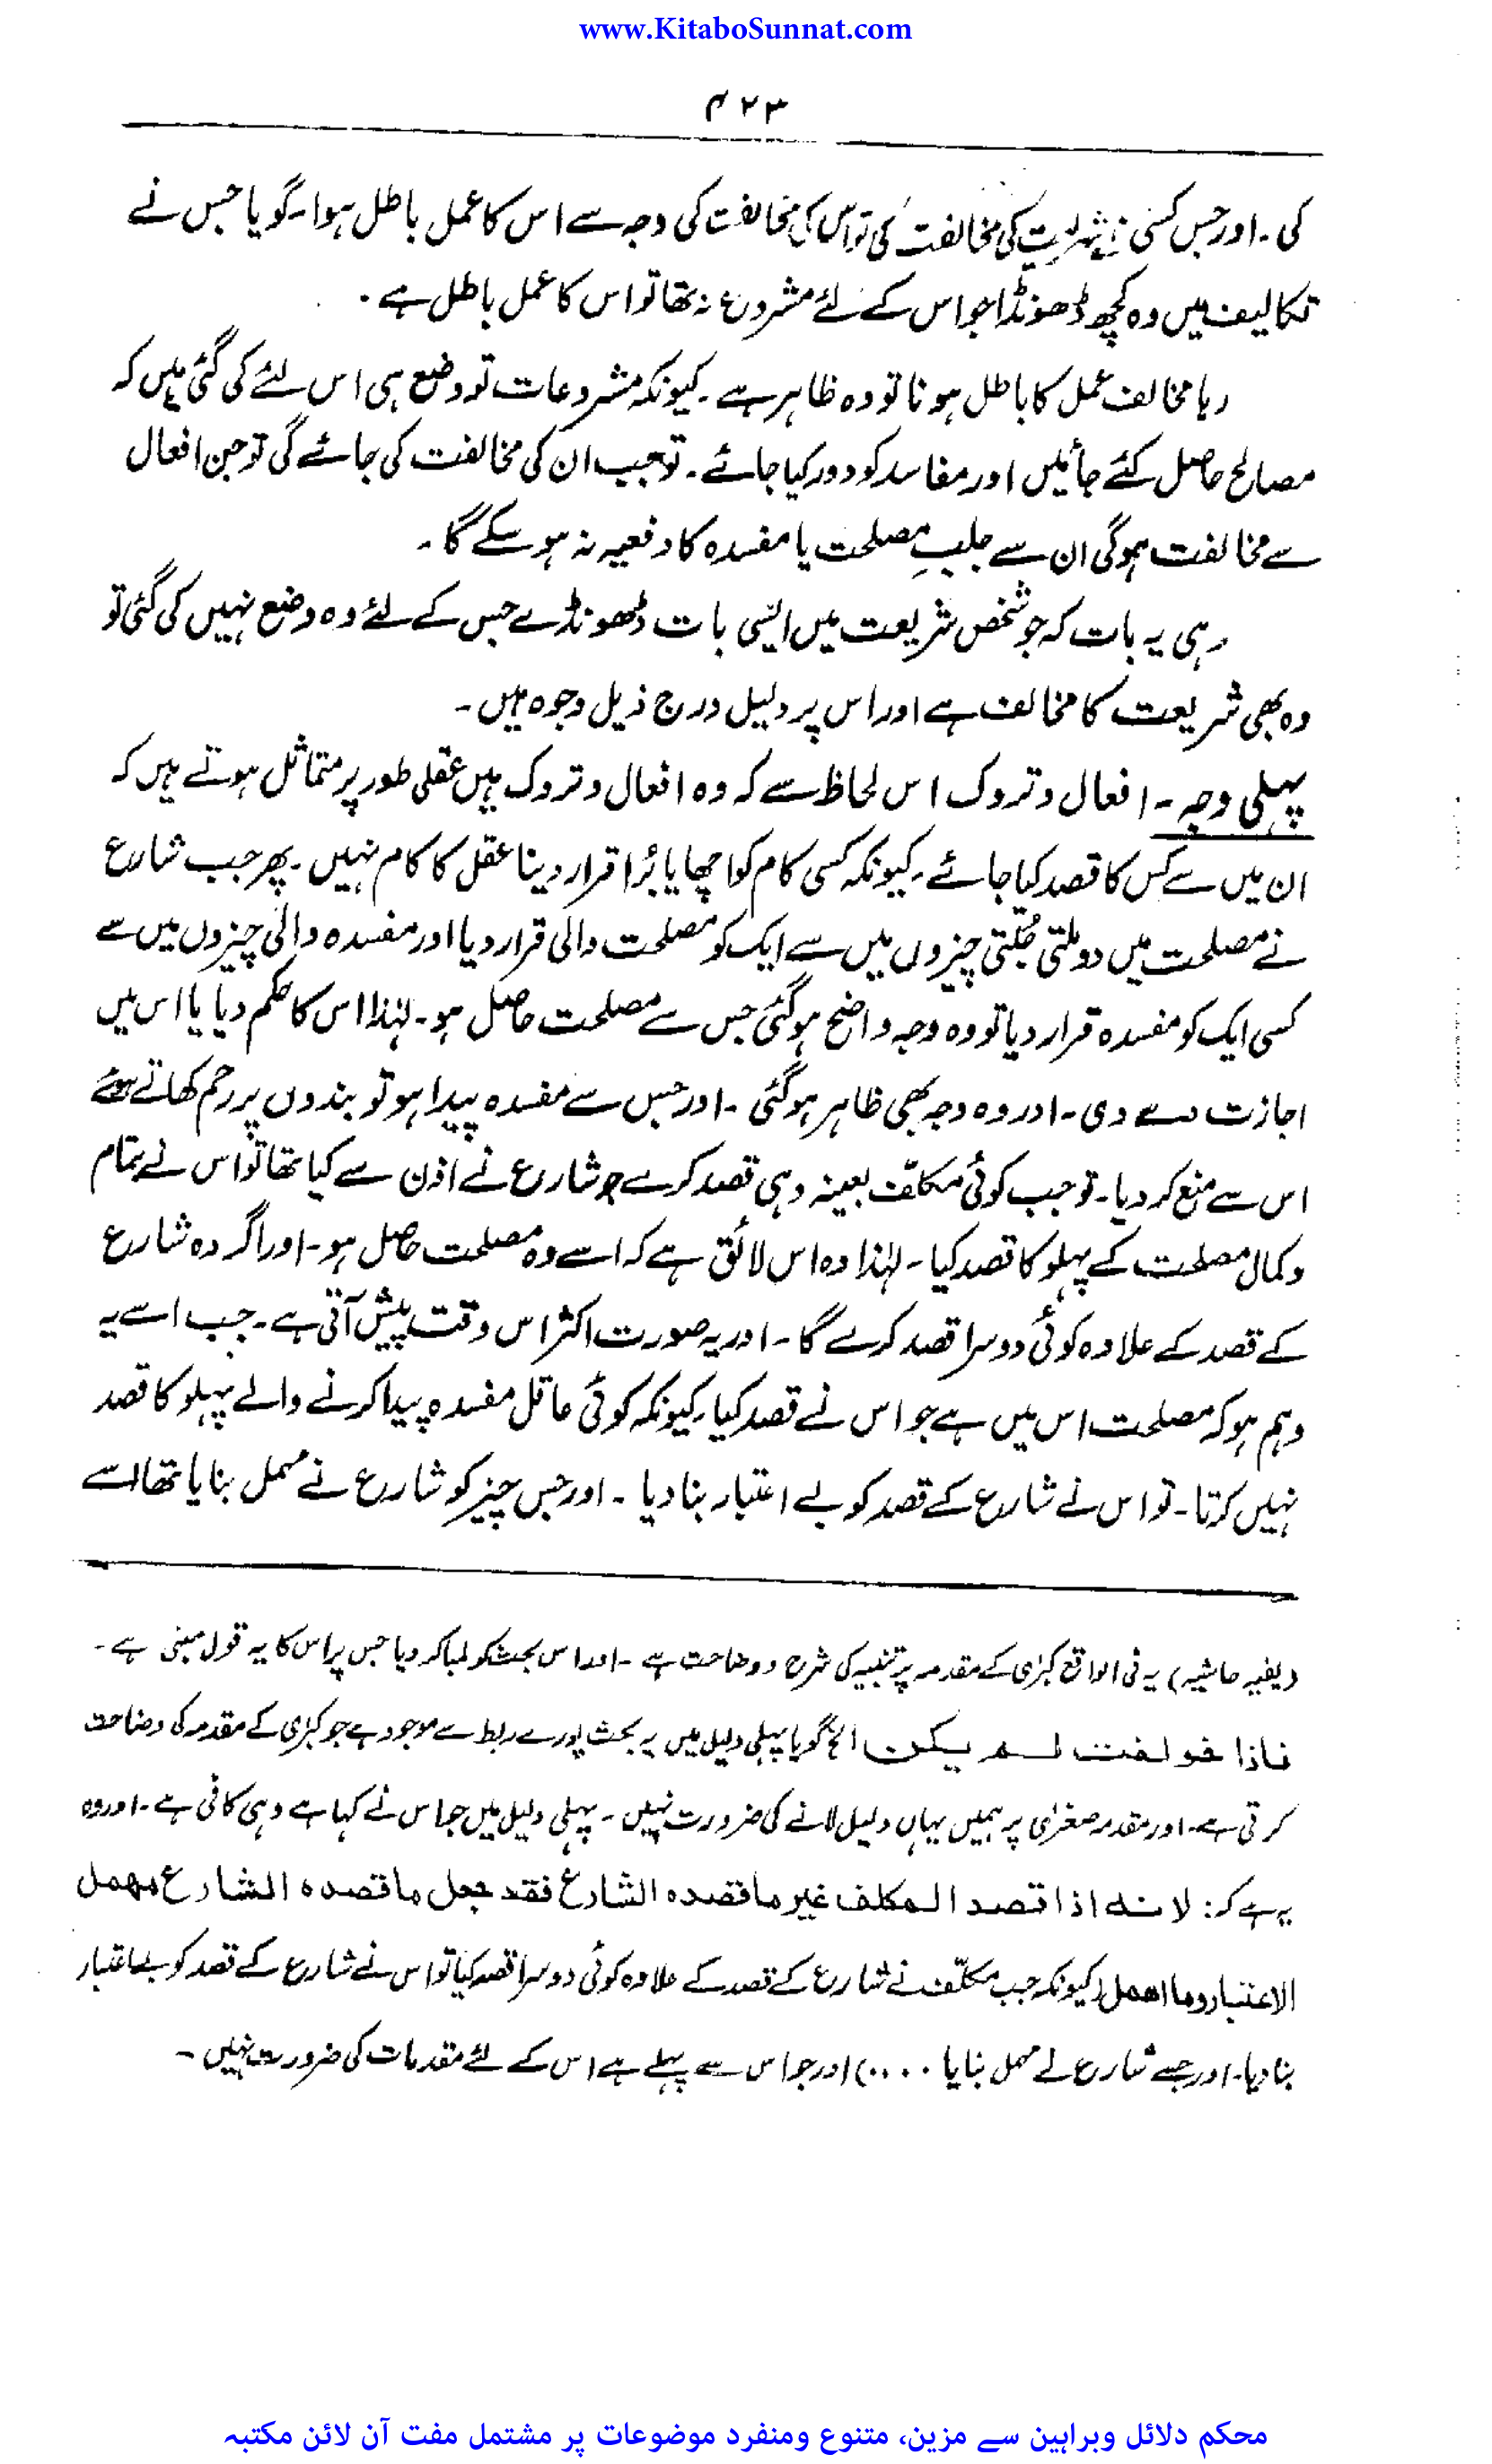 www.KitaboSunnat.com
۴۲۳
کی۔ اور جس کسی نے شریعت کی مخالفت کی تو اس کی مخالفت کی وجہ سے اس کا عمل باطل ہوا۔ گویا جس نے
تکالیف میں وہ کچھ ڈھونڈا جو اس کے لئے مشروع نہ تھا تو اس کا عمل باطل ہے۔
رہا مخالف عمل کا باطل ہونا تو وہ ظاہر ہے۔ کیونکہ مشروعات تو وضع ہی اس لئے کی گئی ہیں کہ
مصالح حاصل کئے جائیں اور مفاسد کو دور کیا جائے۔ تو جب ان کی مخالفت کی جائے گی تو جن افعال
سے مخالفت ہوگی ان سے جلبِ مصلحت یا مفسدہ کا دفعیہ نہ ہو سکے گا۔
رہی یہ بات کہ جو شخص شریعت میں ایسی بات ڈھونڈے جس کے لئے وہ وضع نہیں کی گئی تو
وہ بھی شریعت کا مخالف ہے اور اس پر دلیل درج ذیل وجوہ ہیں۔
پہلی وجہ۔ افعال و تروک اس لحاظ سے کہ وہ افعال و تروک ہیں عقلی طور پر متماثل ہوتے ہیں کہ
ان میں سے کس کا قصد کیا جائے۔ کیونکہ کسی کام کو اچھا یا بُرا قرار دینا عقل کا کام نہیں۔ پھر جب شارع
نے مصلحت میں دو ملتی جُلتی چیزوں میں سے ایک کو مصلحت والی قرار دیا اور مفسدہ والی چیزوں میں سے
کسی ایک کو مفسدہ قرار دیا تو وہ وجہ واضح ہوگئی جس سے مصلحت حاصل ہو۔ لہٰذا اس کا حکم دیا یا اس میں
اجازت دے دی۔ اور وہ وجہ بھی ظاہر ہوگئی۔ اور جس سے مفسدہ پیدا ہو تو بندوں پر رحم کھاتے ہوئے
اس سے منع کر دیا۔ تو جب کوئی مکلّف بعینہ وہی قصد کرے جو شارع نے اذن سے کیا تھا تو اس نے بتمام
و کمال مصلحت کے پہلو کا قصد کیا۔ لہٰذا وہ اس لائق ہے کہ اسے وہ مصلحت حاصل ہو۔ اور اگر وہ شارع
کے قصد کے علاوہ کوئی دوسرا قصد کرے گا۔ اور یہ صورت اکثر اس وقت پیش آتی ہے۔ جب اسے یہ
وہم ہو کہ مصلحت اس میں ہے جو اس نے قصد کیا، کیونکہ کوئی عاقل مفسدہ پیدا کرنے والے پہلو کا قصد
نہیں کرتا۔ تو اس نے شارع کے قصد کو بے اعتبار بنا دیا۔ اور جس چیز کو شارع نے مہمل بنایا تھا اسے
(بقیہ حاشیہ) یہ فی الواقع کبریٰ کے مقدمہ پر تنبیہ کی شرح و وضاحت ہے۔ اور اس بحث کو لمبا کر دیا جس پر اس کا یہ قول مبنی ہے۔
فاذا خولفت لم یکن الخ گویا پہلی دلیل میں یہ بحث پورے ربط سے موجود ہے جو کبریٰ کے مقدمہ کی وضاحت
کرتی ہے۔ اور مقدمہ صغریٰ پر ہمیں یہاں دلیل لانے کی ضرورت نہیں۔ پہلی دلیل میں جو اس نے کہا ہے وہی کافی ہے۔ اور وہ
یہ ہے کہ: لانہ اذا قصد المکلف غیر ما قصدہ الشارع فقد جعل ما قصدہ الشارع مہمل
الاعتبار وما اھمل (کیونکہ جب مکلّف نے شارع کے قصد کے علاوہ کوئی دوسرا قصد کیا تو اس نے شارع کے قصد کو بے اعتبار
بنا دیا۔ اور جسے شارع نے مہمل بنایا ....) اور جو اس سے پہلے ہے اس کے لئے مقدمات کی ضرورت نہیں۔
محکم دلائل وبراہین سے مزین، متنوع ومنفرد موضوعات پر مشتمل مفت آن لائن مکتبہ